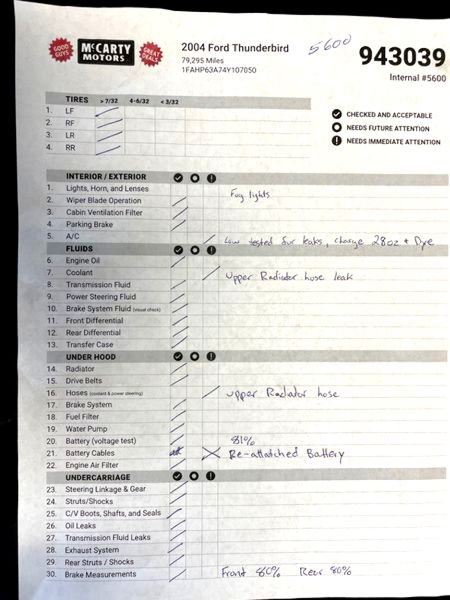 GOOD GUYS
McCARTY MOTORS
GREAT DEALS
2004 Ford Thunderbird
79,295 Miles
1FAHP63A74Y107050
5600
943039
Internal #5600
TIRES > 7/32 4-6/32 < 3/32
1. LF
2. RF
3. LR
4. RR
CHECKED AND ACCEPTABLE
NEEDS FUTURE ATTENTION
NEEDS IMMEDIATE ATTENTION
INTERIOR / EXTERIOR
1. Lights, Horn, and Lenses Fog lights
2. Wiper Blade Operation
3. Cabin Ventilation Filter
4. Parking Brake
5. A/C Low tested for leaks, charge 28oz + Dye
FLUIDS
6. Engine Oil
7. Coolant Upper Radiator hose leak
8. Transmission Fluid
9. Power Steering Fluid
10. Brake System Fluid (visual check)
11. Front Differential
12. Rear Differential
13. Transfer Case
UNDER HOOD
14. Radiator
15. Drive Belts
16. Hoses (coolant & power steering) upper Radiator hose
17. Brake System
18. Fuel Filter
19. Water Pump
20. Battery (voltage test) 81%
21. Battery Cables Re-attatched Battery
22. Engine Air Filter
UNDERCARRIAGE
23. Steering Linkage & Gear
24. Struts/Shocks
25. C/V Boots, Shafts, and Seals
26. Oil Leaks
27. Transmission Fluid Leaks
28. Exhaust System
29. Rear Struts / Shocks
30. Brake Measurements Front 80% Rear 80%